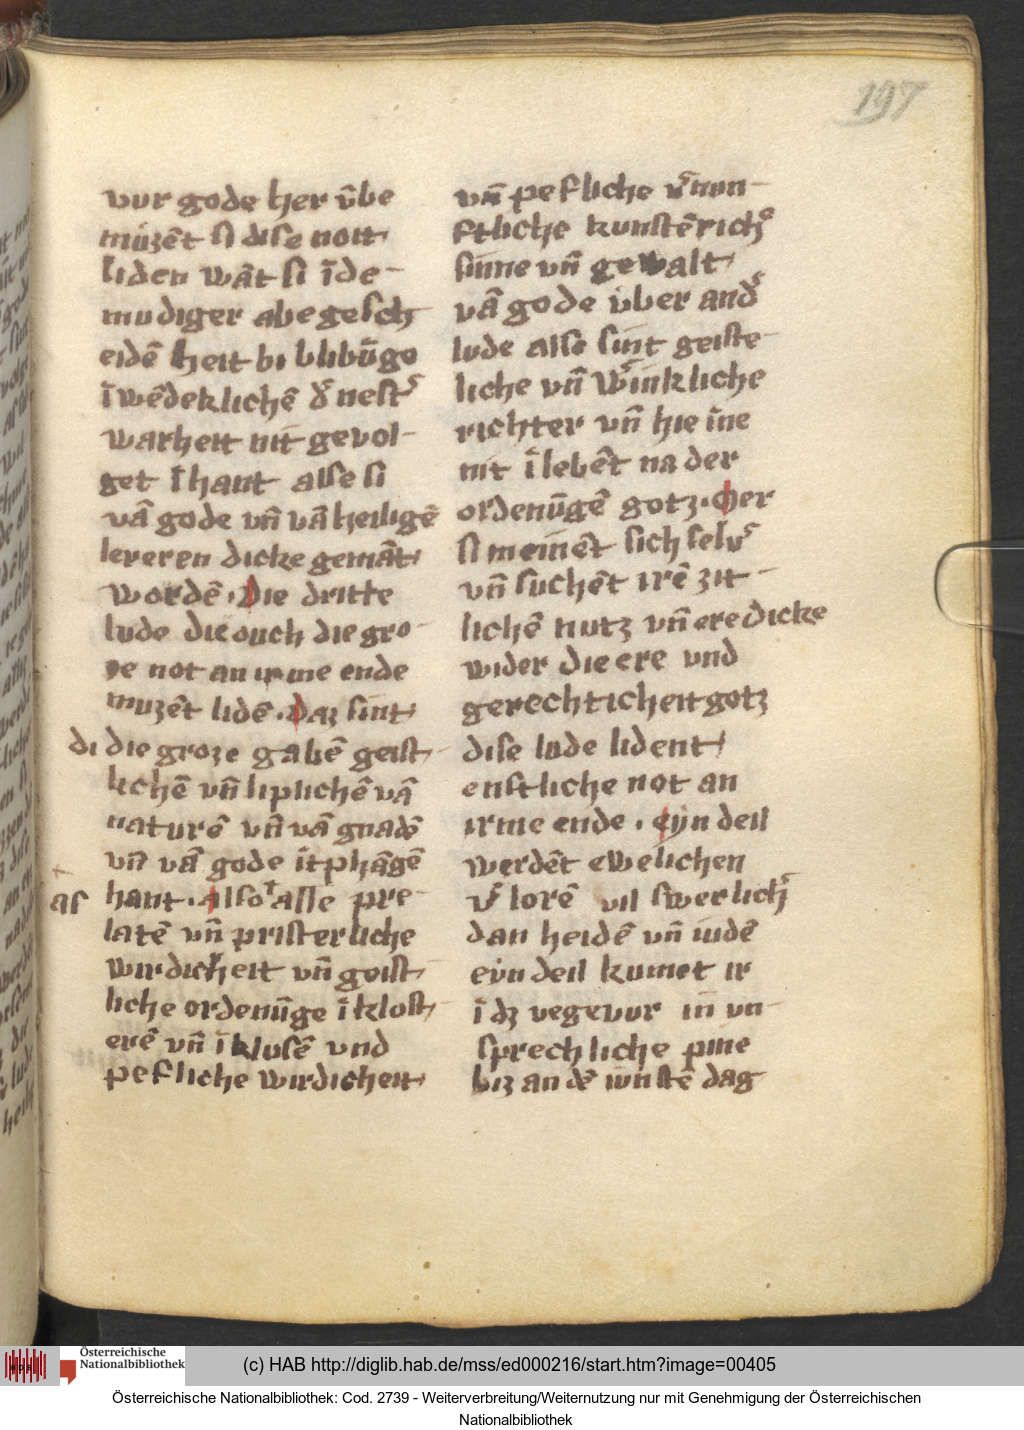 197
vur gode her v̄be
müzēt si dise nott
liden wāt si īde-
mudiger abegesch
eidē heit bi blibūge
īwēdeklichē dͤ nestͤ
warheit nit gevol-
get īhant alse si
vā gode vn̄ vā heiligē
lereren dicke gemāt
wordē. Die dritte
lude die ouch die gro-
ze not an irme ende
muzēt lidē. Daz sint
di die groze gabē geist-
lichē vn̄ liplichē vā
naturē vn̄ vā gnadē
vn̄ vā gode ītphāgē
hant. also alle pre-
as
latē vn̄ pristerliche
wirdicheit vn̄ geist-
liche ordenūge ī klost
erē vn̄ ī klusē vnd
pefliche wirdicheit
vn̄ pefliche vͤnun-
ftliche kunstērichͤ
sinne vn̄ gewalt
vā gode vber andͤ
lude alse sint geiste-
liche vn̄ wͤinkliche
richter vn̄ hie ine
nit ī lebēt na der
ordenūgē gotz. Mer
si meinēt sich selvͤ
vn̄ suchēt irē zit-
lichē nutz vn̄ ere dicke
wider die ere vnd
gerechticheit gotz
dise lude lident
enstliche not an
irme ende. eyn deil
werdēt ewelichen
vͤ lorē vil swerlichͤ
dan heidē vn̄ iudē
eyn deil kumet ir
ī dz vegevur in vn-
sprechliche pine
biz an dē iūnstē dag
Österreichische
Nationalbibliothek
(c) HAB http://diglib.hab.de/mss/ed000216/start.htm?image=00405
Österreichische Nationalbibliothek: Cod. 2739 - Weiterverbreitung/Weiternutzung nur mit Genehmigung der Österreichischen
Nationalbibliothek